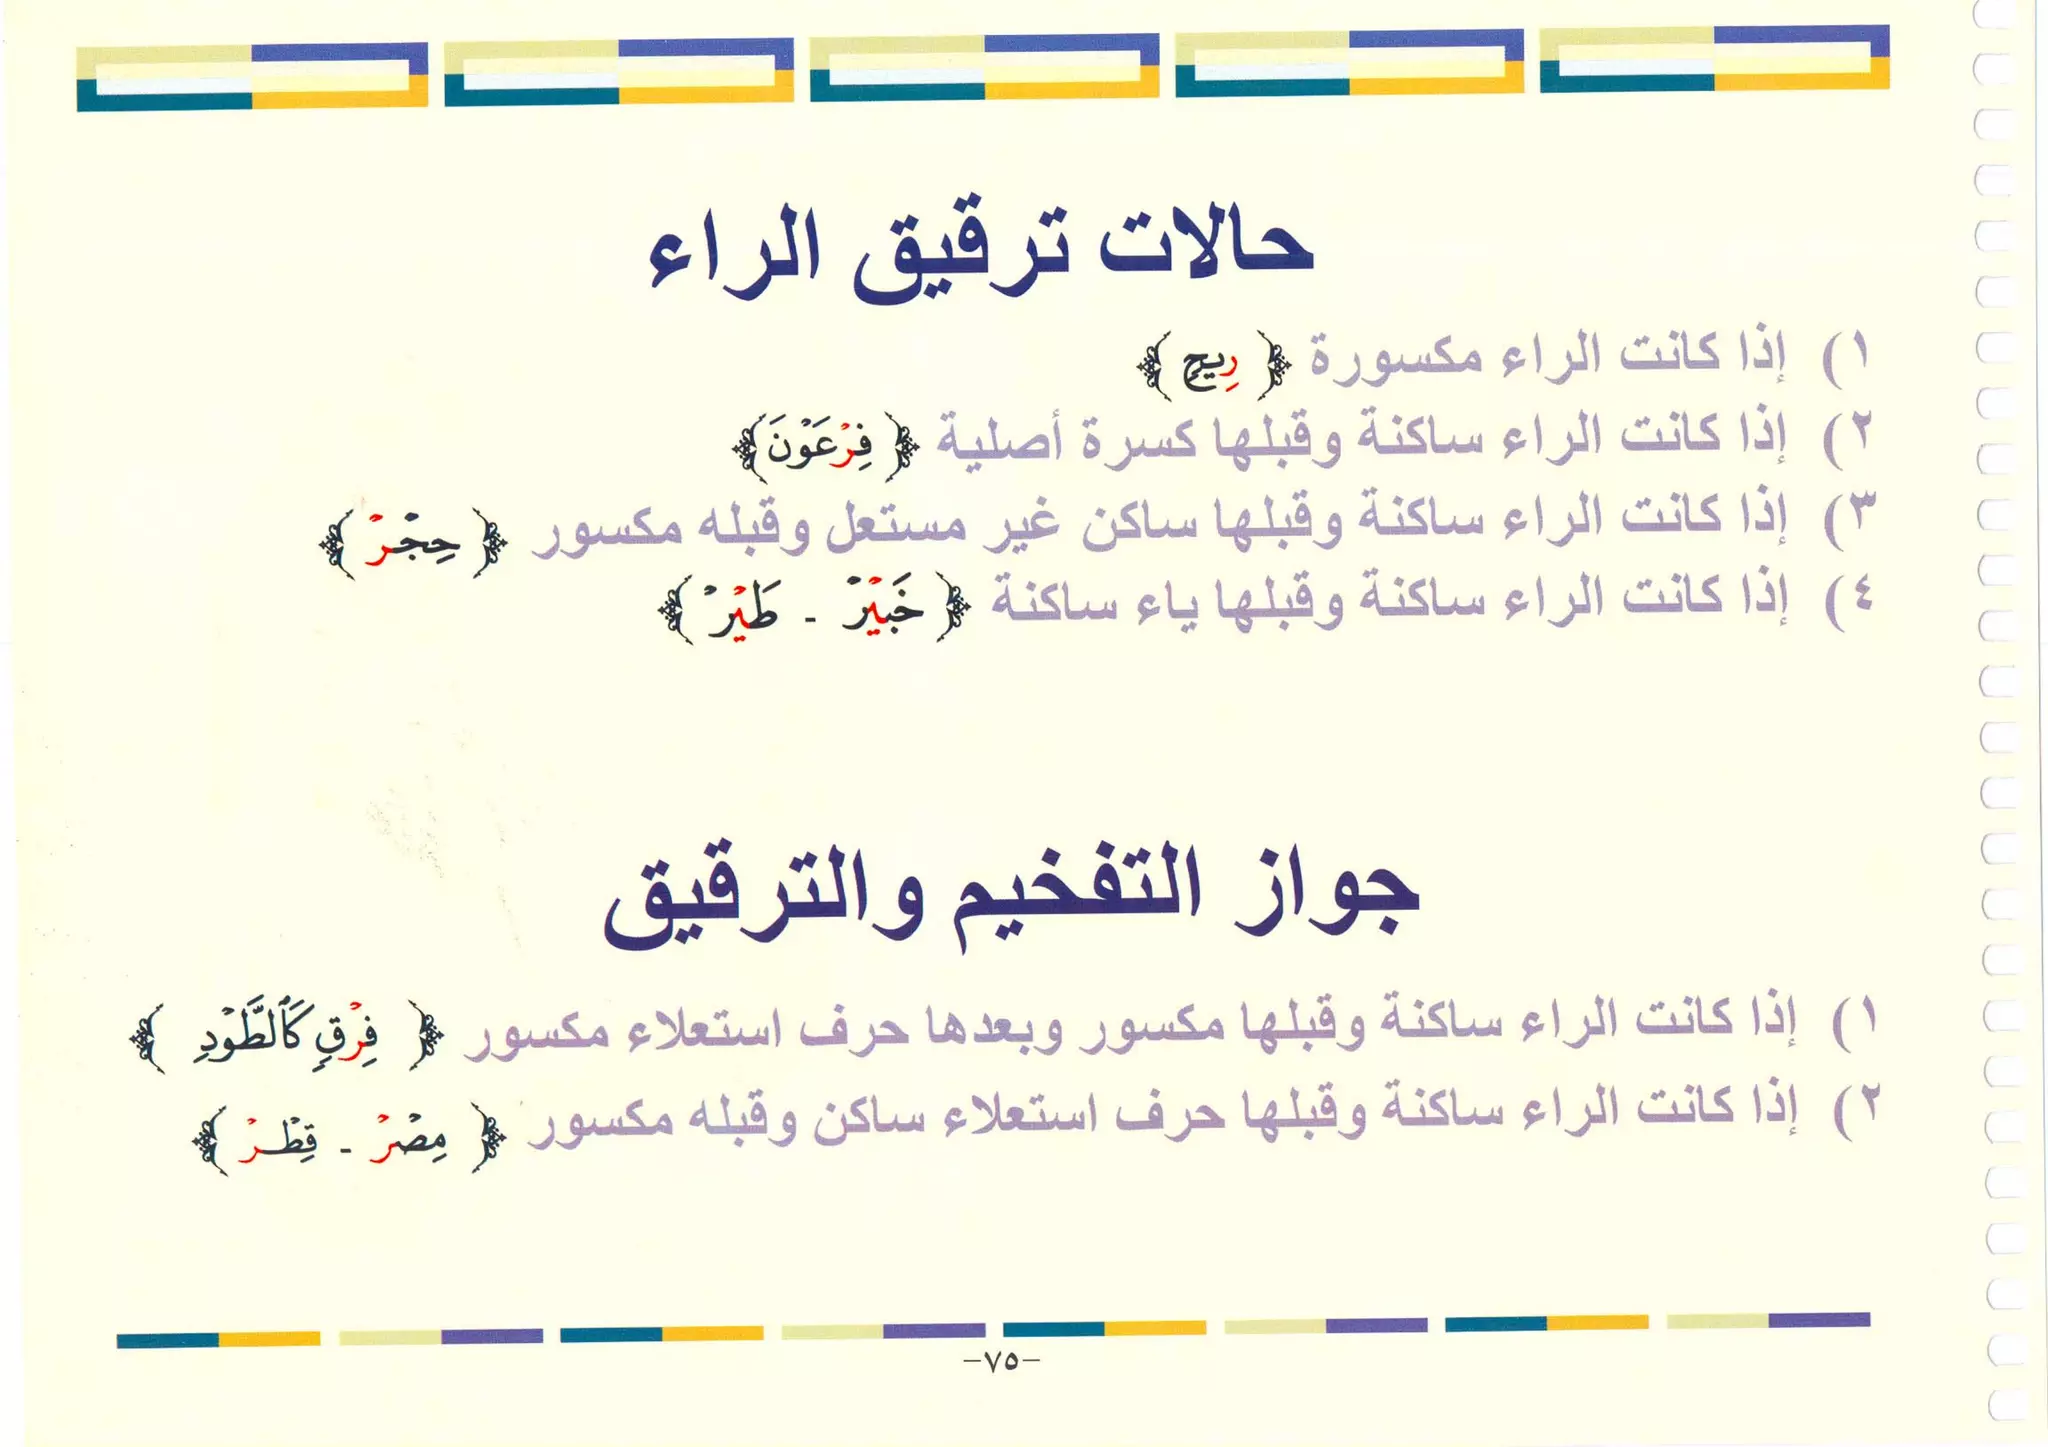 حالات ترقيق الراء
١) إذا كانت الراء مكسورة ﴿ رِيح ﴾
٢) إذا كانت الراء ساكنة وقبلها كسرة أصلية ﴿ فِرْعَوْنَ ﴾
٣) إذا كانت الراء ساكنة وقبلها ساكن غير مستعل وقبله مكسور ﴿ حِجْرْ ﴾
٤) إذا كانت الراء ساكنة وقبلها ياء ساكنة ﴿ خَبَيْرْ - طَيْرْ ﴾
جواز التفخيم والترقيق
١) إذا كانت الراء ساكنة وقبلها مكسور وبعدها حرف استعلاء مكسور ﴿ فِرْقٍ كَٱلطَّوْدِ ﴾
٢) إذا كانت الراء ساكنة وقبلها حرف استعلاء ساكن وقبله مكسور ﴿ مِصْرْ - قِطْرْ ﴾
-٧٥-